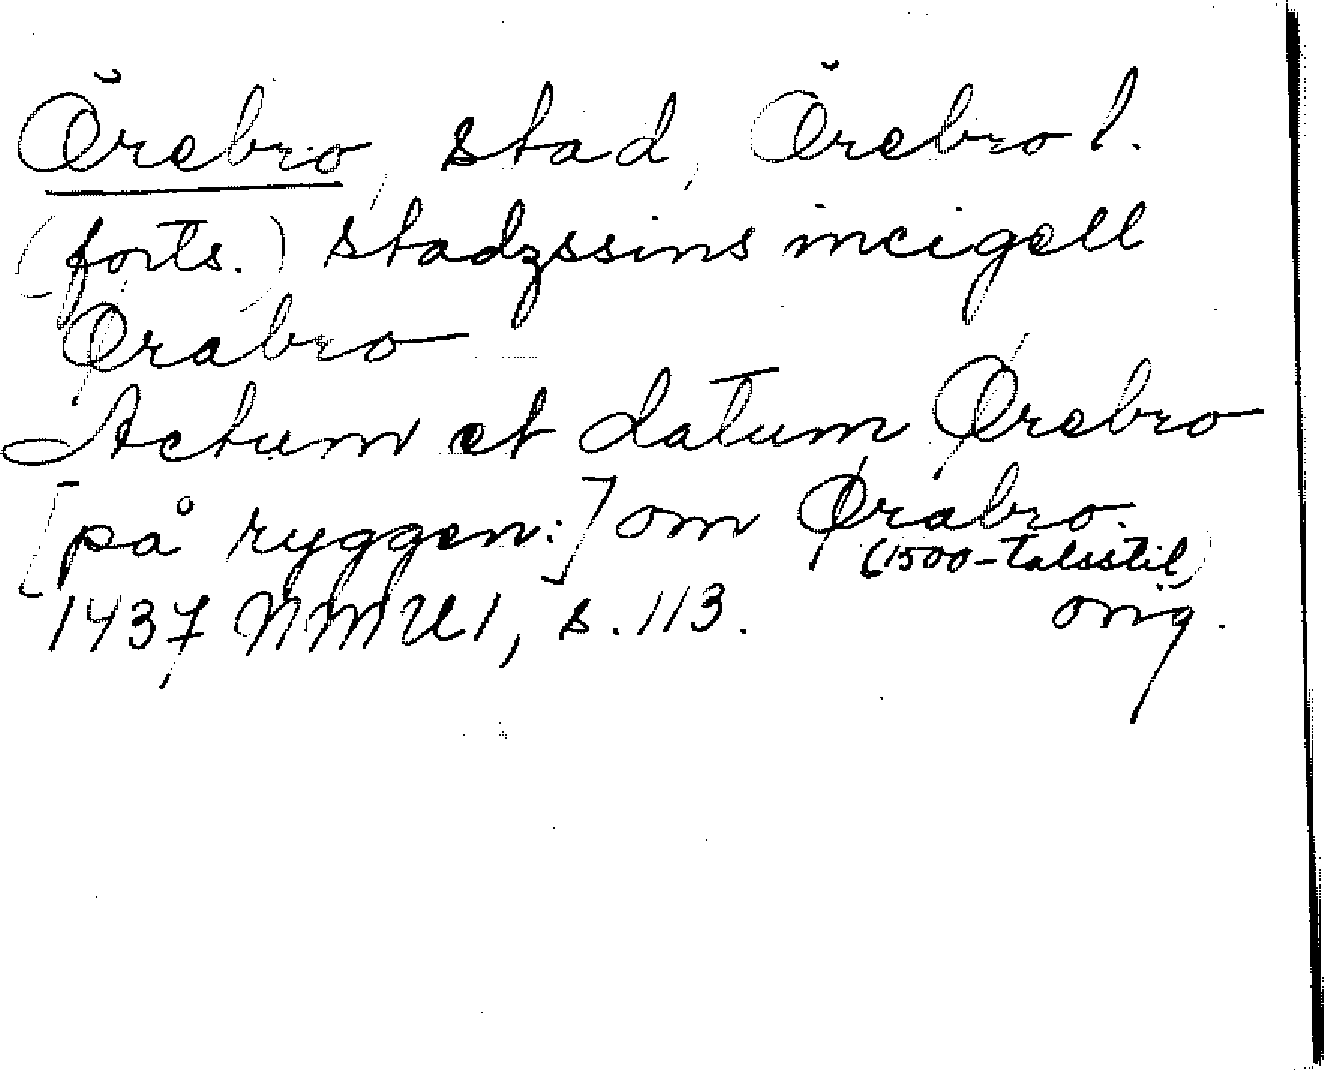 Örebro, stad, Örebro l.
(forts.) stadzssins incigell
Ørabro
Actum et datum Ørebro
[på ryggen:] om Ørabro.
(1500-talsstil)
1437 NMU 1, s. 113. orig.